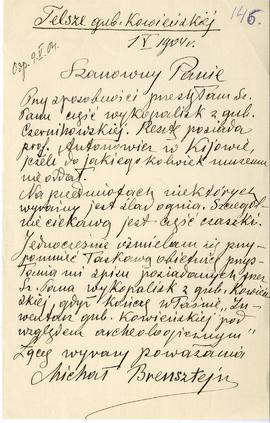 Telsze gub. Kowieńskiej
146.
1 V 1904 r.
Odp. 9.V.04.
Szanowny Panie
Przy sposobności przesyłam Sz.
Panu część wykopalisk z gub.
Czernihowskiej. Resztę posiada
prof. Antonowicz w Kijowie,
jeśli do jakiego kolwiek muzeum
nie oddał.
Na przedmiotach niektórych
wyraźny jest ślad ognia. Szczegól-
nie ciekawą jest część czaszki.
Jednocześnie ośmielam się przy-
pomnieć łaskawą obietnicę przy-
słania mi spisu posiadanych przez
Sz. Pana wykopalisk z gub. Kowień-
skiej, gdyż kończę właśnie „In-
wentarz gub. Kowieńskiej pod
względem archeologicznym"
Łączę wyrazy poważania
Michał Brensztejn